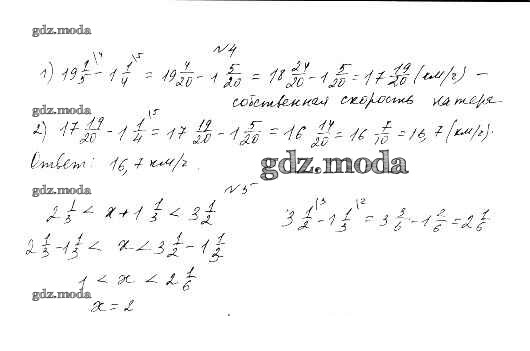 gdz.moda
№4
1) 19 1/5 \4 - 1 1/4 \5 = 19 4/20 - 1 5/20 = 18 24/20 - 1 5/20 = 17 19/20 (км/г) -
собственная скорость катера.
gdz.moda
2) 17 19/20 - 1 1/4 \5 = 17 19/20 - 1 5/20 = 16 14/20 = 16 7/10 = 16,7 (км/г).
Ответ: 16,7 км/г.
gdz.moda
gdz.moda
№5
2 1/3 < x + 1 1/3 < 3 1/2
3 1/2 \3 - 1 1/3 \2 = 3 3/6 - 1 2/6 = 2 1/6
2 1/3 - 1 1/3 < x < 3 1/2 - 1 1/3
1 < x < 2 1/6
gdz.moda
x = 2